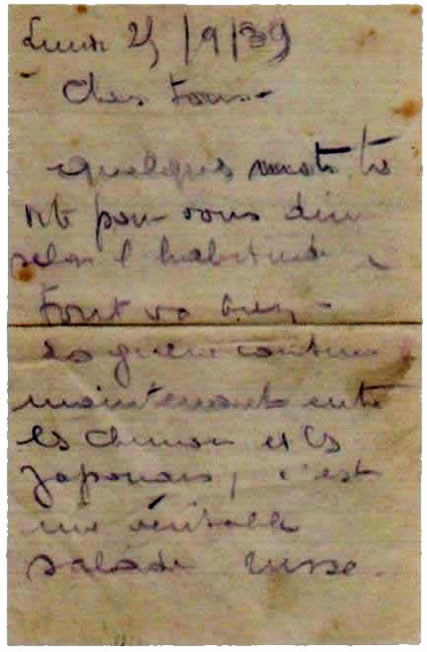 Lundi 25/9/39
Chers tous -
quelques mots très
vite pour vous dire
selon l'habitude
tout va bien -
La guerre continue
maintenant entre
les chinois et les
Japonais, c'est
une véritable
salade russe.